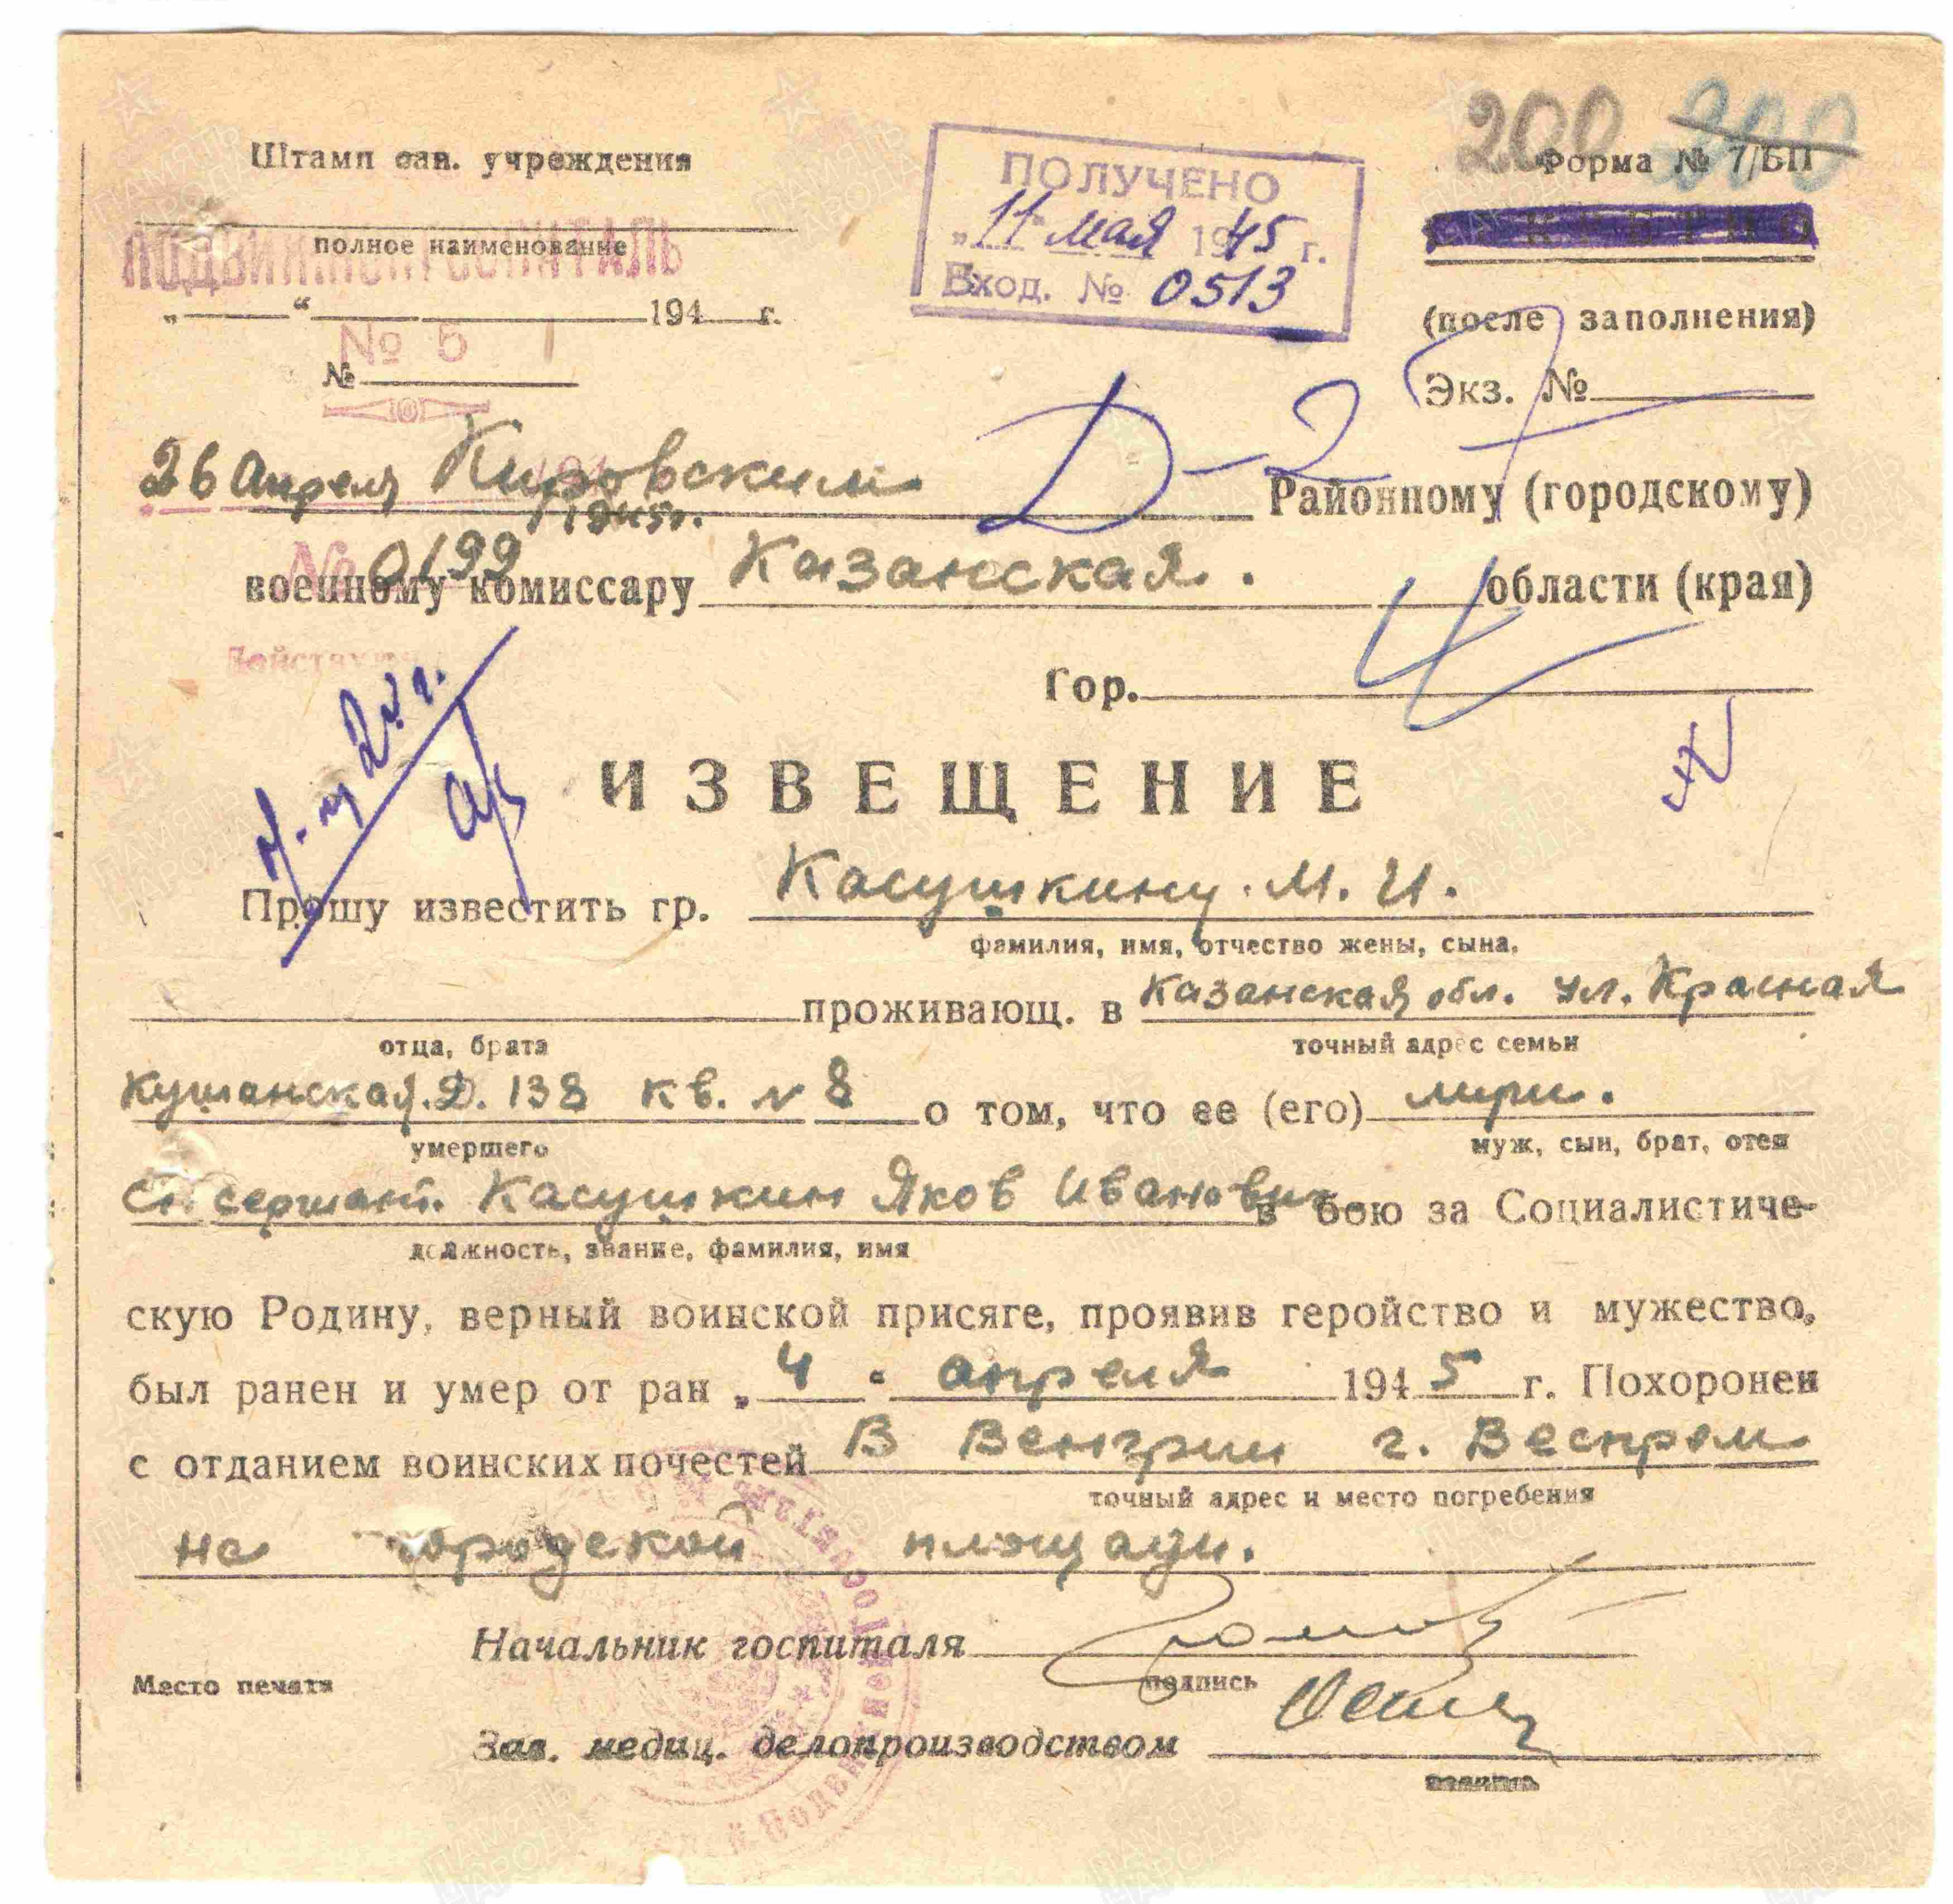 200 300
Штамп сан. учреждения
Форма № 7/БП
ПОЛУЧЕНО
„11" мая 1945 г.
Вход. № 0513
полное наименование
ПОДВИЖНОЙ ГОСПИТАЛЬ
„ “ 194 г.
№ 5
(после заполнения)
№
Экз. №
Д-2
26 Апреля 1945г. Кировским Районному (городскому)
№ 0199
военному комиссару Казанская. области (края)
Гор.
ИЗВЕЩЕНИЕ
Прошу известить гр. Касушкину. М. И.
фамилия, имя, отчество жены, сына,
проживающ. в Казанская обл. ул. Красная
отца, брата
точный адрес семьи
Кушанская. Д. 138 кв. № 8 о том, что ее (его)
умершего
муж, сын, брат, отец
Ст. сержант. Касушкин Яков Иванович в бою за Социалистиче-
должность, звание, фамилия, имя
скую Родину, верный воинской присяге, проявив геройство и мужество,
был ранен и умер от ран „4" апреля 1945 г. Похоронен
с отданием воинских почестей В Венгрии г. Веспрем
точный адрес и место погребения
на городской площади.
Начальник госпиталя
подпись
Место печати
Зав. медиц. делопроизводством
подпись